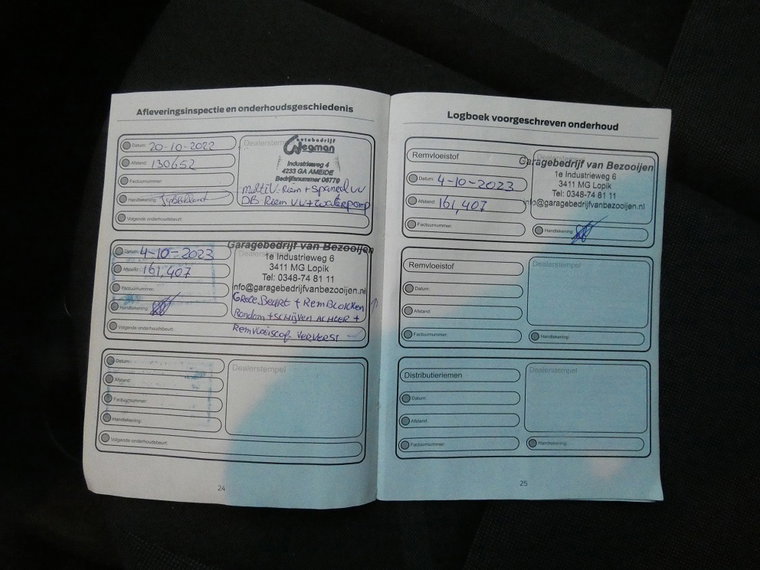 Afleveringsinspectie en onderhoudsgeschiedenis
Datum: 20-10-2022
Afstand: 130652
Factuurnummer:
Handtekening:
Volgende onderhoudsbeurt:
Dealerstempel
Autobedrijf
Wegman
Industrieweg 4
4233 GA AMEIDE
Bedrijfsnummer 06770
multi V. Riem + Spanrol vv
DB Riem vv + waterpomp
Datum: 4-10-2023
Afstand: 161,407
Factuurnummer:
Handtekening:
Volgende onderhoudsbeurt:
Garagebedrijf van Bezooijen
1e Industrieweg 6
3411 MG Lopik
Tel: 0348-74 81 11
info@garagebedrijfvanbezooijen.nl
Grote Beurt + Remblokken
Rondom + schijven achter +
Remvloeistof ververst
Datum:
Afstand:
Factuurnummer:
Handtekening:
Volgende onderhoudsbeurt:
Dealerstempel
24
Logboek voorgeschreven onderhoud
Remvloeistof
Datum: 4-10-2023
Afstand: 161,407
Factuurnummer:
Garagebedrijf van Bezooijen
1e Industrieweg 6
3411 MG Lopik
Tel: 0348-74 81 11
info@garagebedrijfvanbezooijen.nl
Handtekening:
Remvloeistof
Datum:
Afstand:
Factuurnummer:
Dealerstempel
Handtekening:
Distributieriemen
Datum:
Afstand:
Factuurnummer:
Dealerstempel
Handtekening:
25